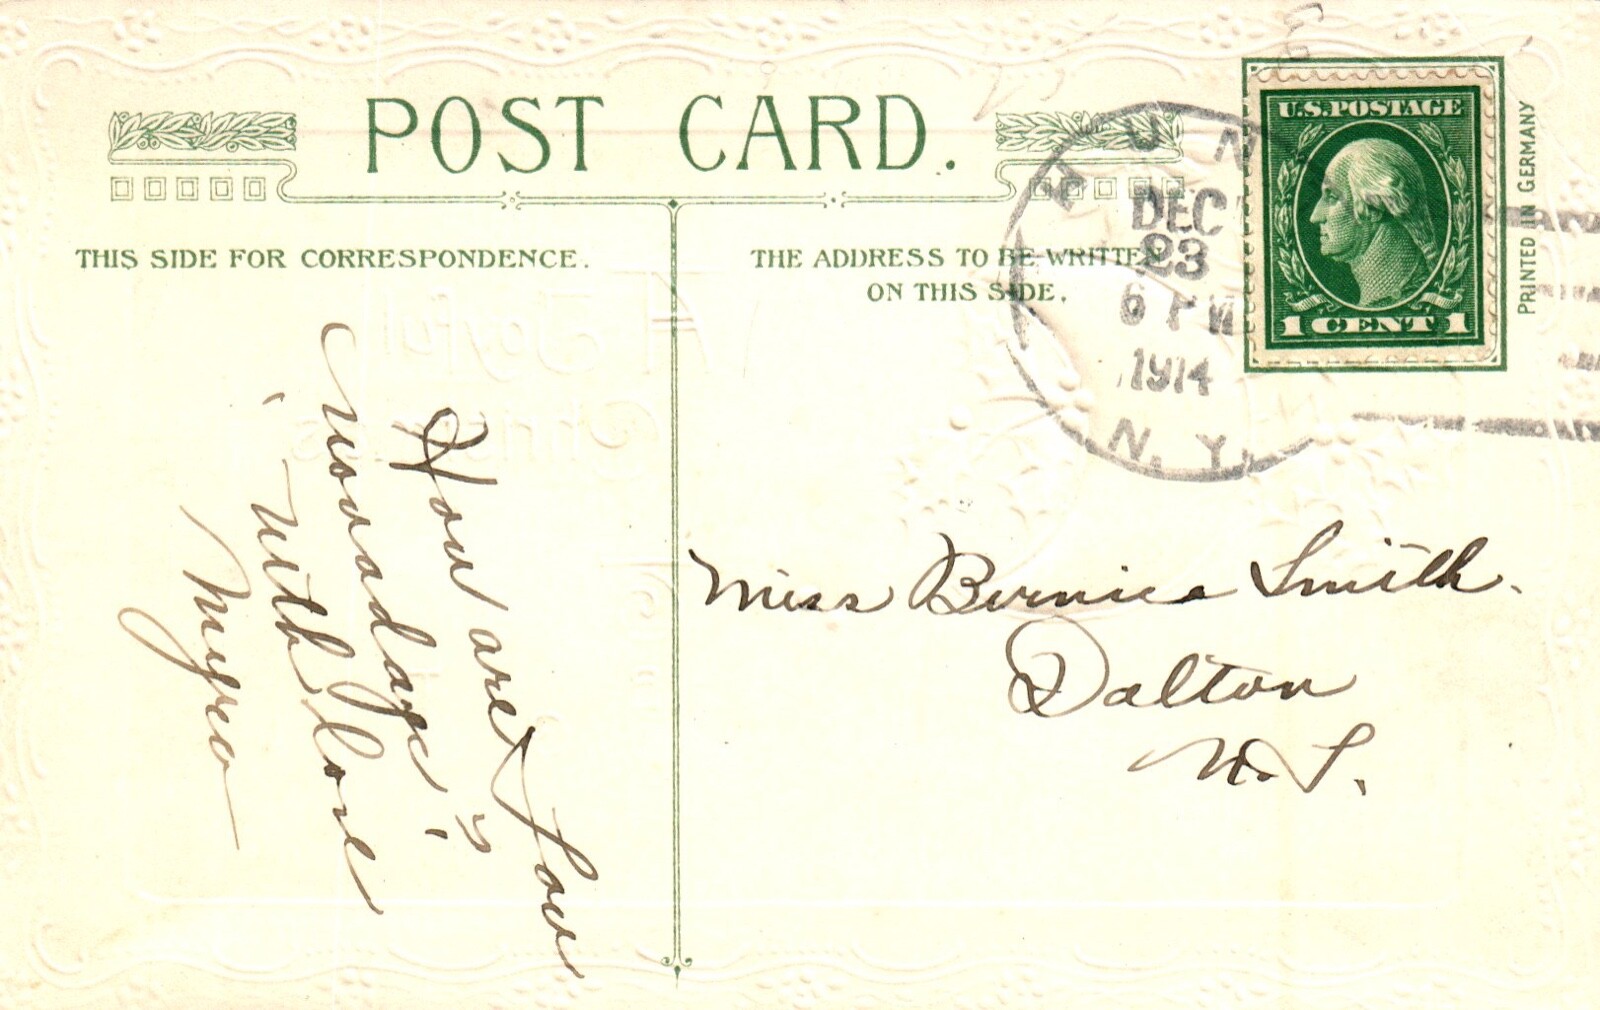 POST CARD.
THIS SIDE FOR CORRESPONDENCE.
THE ADDRESS TO BE WRITTEN
ON THIS SIDE.
HUN
DEC
23
6 PM
1914
N.Y.
U.S. POSTAGE
1 CENT 1
PRINTED IN GERMANY
How are you
nowadays?
With love
Myra
Miss Bernice Smith.
Dalton
N.Y.
A Joyful
Christmas